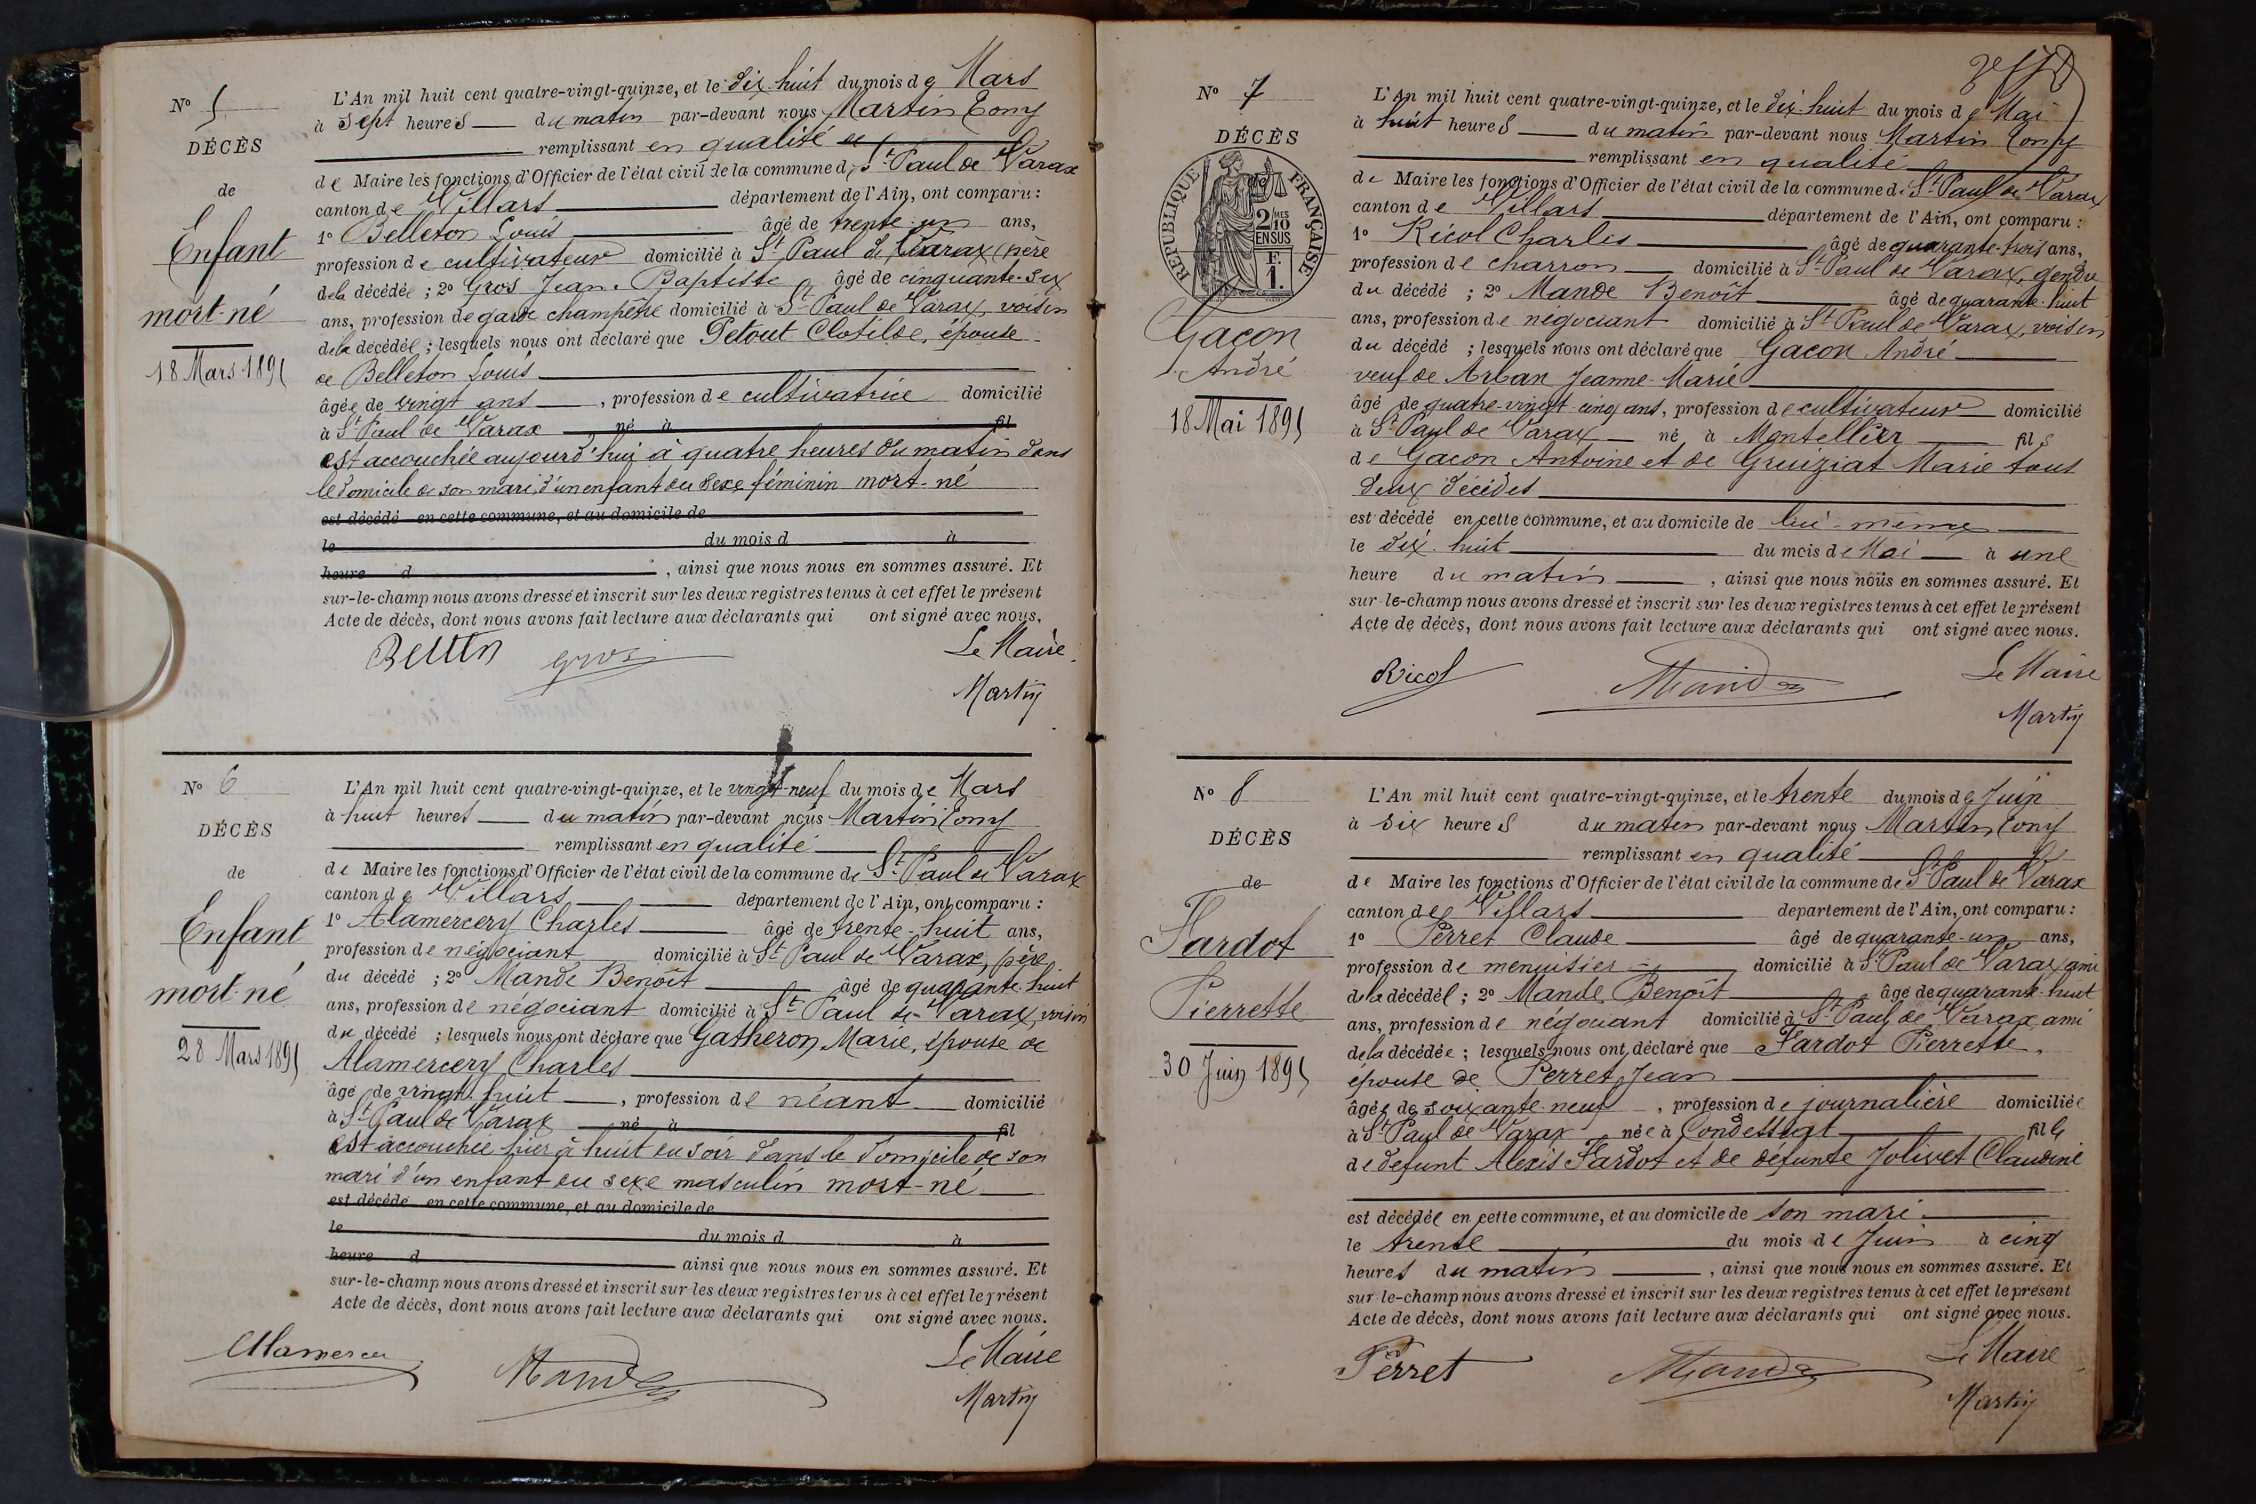 Nº 5
DÉCÈS
de
Enfant
mort-né
18 Mars 1895
L'An mil huit cent quatre-vingt-quinze, et le dix huit du mois de Mars
à sept heures du matin par-devant nous Martin Tony
remplissant en qualité
de Maire les fonctions d'Officier de l'état civil de la commune de St Paul de Varax
canton de Villars département de l'Ain, ont comparu :
1º Belleton Louis âgé de trente-un ans,
profession de cultivateur domicilié à St Paul de Varax, père
de la décédée ; 2º Gros Jean-Baptiste âgé de cinquante-six
ans, profession de garde champêtre domicilié à St Paul de Varax, voisin
de la décédée ; lesquels nous ont déclaré que Petout Clotilde, épouse
de Belleton Louis
âgée de vingt ans, profession de cultivatrice domicilié
à St Paul de Varax né à fil
est accouchée aujourd'hui à quatre heures du matin dans
le domicile de son mari, d'un enfant du sexe féminin mort-né
est décédé en cette commune, et au domicile de
le du mois d à
heure d , ainsi que nous nous en sommes assuré. Et
sur-le-champ nous avons dressé et inscrit sur les deux registres tenus à cet effet le présent
Acte de décès, dont nous avons fait lecture aux déclarants qui ont signé avec nous.
Le Maire
gros
Martin
Nº 6
DÉCÈS
de
Enfant
mort-né
28 Mars 1895
L'An mil huit cent quatre-vingt-quinze, et le vingt-neuf du mois de Mars
à huit heures du matin par-devant nous Martin Tony
remplissant en qualité
de Maire les fonctions d'Officier de l'état civil de la commune de St Paul de Varax
canton de Villars département de l'Ain, ont comparu :
1º Alamercery Charles âgé de trente-huit ans,
profession de négociant domicilié à St Paul de Varax, père
du décédé ; 2º Mande Benoît âgé de quarante-huit
ans, profession de négociant domicilié à St Paul de Varax, voisin
du décédé ; lesquels nous ont déclaré que Gatheron Marie, épouse de
Alamercery Charles
âgé de vingt-huit , profession de néant domicilié
à St Paul de Varax né à fil
est accouchée hier à huit du soir dans le domicile de son
mari d'un enfant du sexe masculin mort-né
est décédé en cette commune, et au domicile de
le du mois d à
heure d ainsi que nous nous en sommes assuré. Et
sur-le-champ nous avons dressé et inscrit sur les deux registres tenus à cet effet le présent
Acte de décès, dont nous avons fait lecture aux déclarants qui ont signé avec nous.
Le Maire
Mande
Martin
Nº 7
DÉCÈS
de
RÉPUBLIQUE FRANÇAISE
2/10 MES
EN SUS
F.
1.
Gacon
André
18 Mai 1895
L'An mil huit cent quatre-vingt-quinze, et le dix-huit du mois de Mai
à huit heures du matin par-devant nous Martin Tony
remplissant en qualité
de Maire les fonctions d'Officier de l'état civil de la commune de St Paul de Varax
canton de Villars département de l'Ain, ont comparu :
1º Ricol Charles âgé de quarante-trois ans,
profession de charron domicilié à St Paul de Varax, gendre
du décédé ; 2º Mande Benoît âgé de quarante-huit
ans, profession de négociant domicilié à St Paul de Varax, voisin
du décédé ; lesquels nous ont déclaré que Gacon André
veuf de Arban Jeanne-Marie
âgé de quatre-vingt-cinq ans, profession de cultivateur domicilié
à St Paul de Varax né à Montellier fils
de Gacon Antoine et de Gruiziat Marie tous
deux décédés
est décédé en cette commune, et au domicile de lui-même
le dix-huit du mois de Mai à une
heure du matin , ainsi que nous nous en sommes assuré. Et
sur-le-champ nous avons dressé et inscrit sur les deux registres tenus à cet effet le présent
Acte de décès, dont nous avons fait lecture aux déclarants qui ont signé avec nous.
Ricol Mande Le Maire
Martin
Nº 8
DÉCÈS
de
Fardot
Pierrette
30 Juin 1895
L'An mil huit cent quatre-vingt-quinze, et le trente du mois de Juin
à six heures du matin par-devant nous Martin Tony
remplissant en qualité
de Maire les fonctions d'Officier de l'état civil de la commune de St Paul de Varax
canton de Villars département de l'Ain, ont comparu :
1º Perret Claude âgé de quarante-un ans,
profession de menuisier domicilié à St Paul de Varax, ami
de la décédée ; 2º Mande Benoît âgé de quarante-huit
ans, profession de négociant domicilié à St Paul de Varax, ami
de la décédée ; lesquels nous ont déclaré que Fardot Pierrette,
épouse de Perret Jean
âgée de soixante-neuf , profession de journalière domiciliée
à St Paul de Varax née à Condeissiat fille
de défunt Alexis Fardot et de défunte Jolivet Claudine
est décédée en cette commune, et au domicile de son mari
le trente du mois de Juin à cinq
heures du matin , ainsi que nous nous en sommes assuré. Et
sur-le-champ nous avons dressé et inscrit sur les deux registres tenus à cet effet le présent
Acte de décès, dont nous avons fait lecture aux déclarants qui ont signé avec nous.
Perret Mande Le Maire
Martin